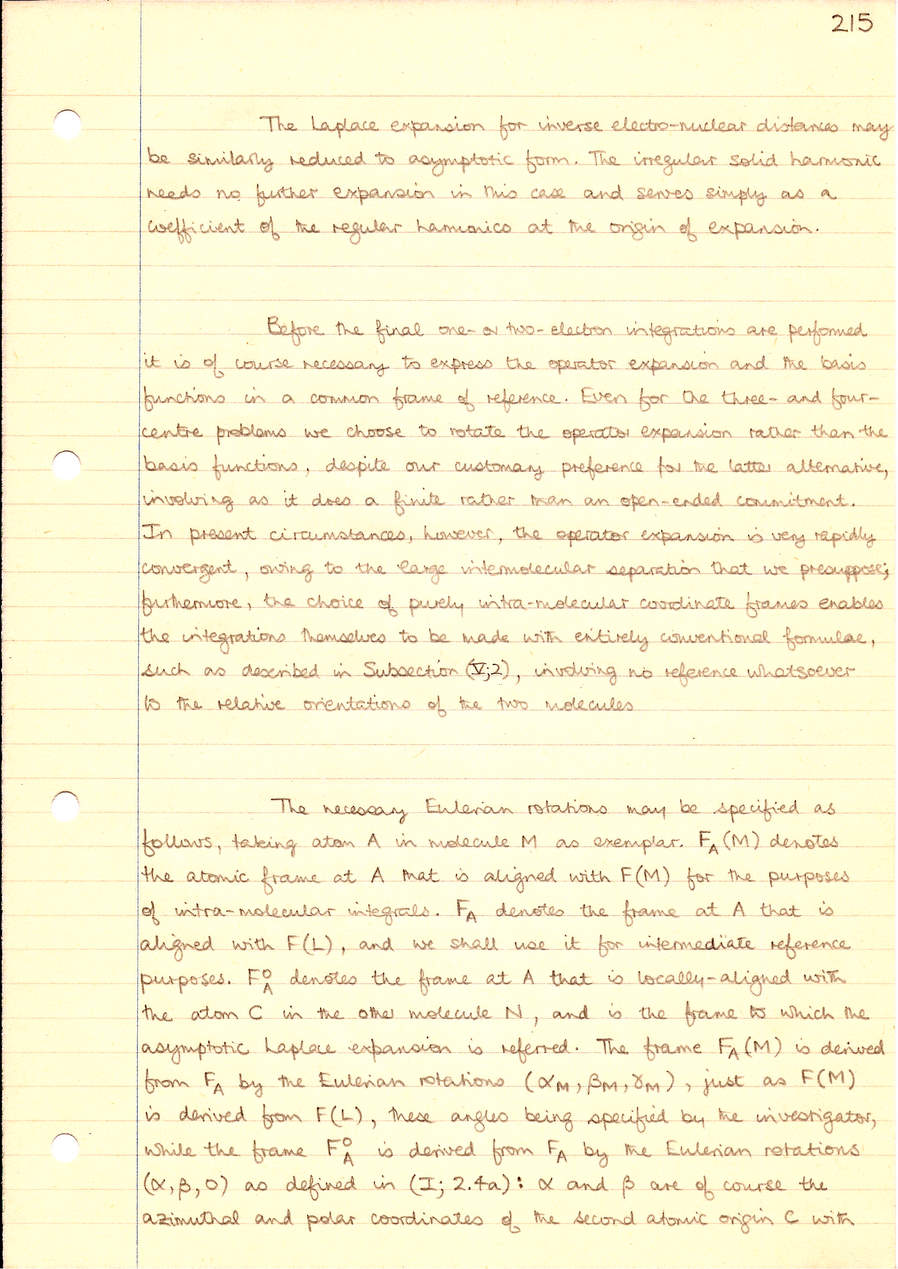 215
The Laplace expansion for inverse electro-nuclear distances may
be similarly reduced to asymptotic form. The irregular solid harmonic
needs no further expansion in this case and serves simply as a
coefficient of the regular harmonics at the origin of expansion.
Before the final one- or two-electron integrations are performed
it is of course necessary to express the operator expansion and the basis
functions in a common frame of reference. Even for the three- and four-
centre problems we choose to rotate the operator expansion rather than the
basis functions, despite our customary preference for the latter alternative,
involving as it does a finite rather than an open-ended commitment.
In present circumstances, however, the operator expansion is very rapidly
convergent, owing to the large intermolecular separation that we presuppose;
furthermore, the choice of purely intra-molecular coordinate frames enables
the integrations themselves to be made with entirely conventional formulae,
such as described in Subsection (V;2), involving no reference whatsoever
to the relative orientations of the two molecules
The necessary Eulerian rotations may be specified as
follows, taking atom A in molecule M as exemplar. F_A(M) denotes
the atomic frame at A that is aligned with F(M) for the purposes
of intra-molecular integrals. F_A denotes the frame at A that is
aligned with F(L), and we shall use it for intermediate reference
purposes. F°_A denotes the frame at A that is locally-aligned with
the atom C in the other molecule N, and is the frame to which the
asymptotic Laplace expansion is referred. The frame F_A(M) is derived
from F_A by the Eulerian rotations (α_M, β_M, γ_M), just as F(M)
is derived from F(L), these angles being specified by the investigator,
while the frame F°_A is derived from F_A by the Eulerian rotations
(α, β, 0) as defined in (I; 2.4a): α and β are of course the
azimuthal and polar coordinates of the second atomic origin C with